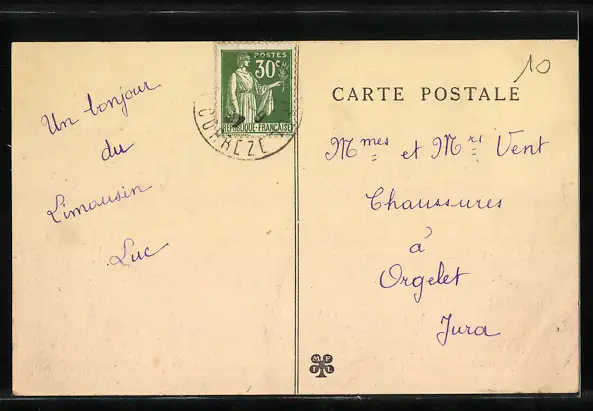 Un bonjour
du
Limousin
Luc
POSTES
30c
REPUBLIQUE-FRANÇAISE
CORREZE
10
CARTE POSTALE
Mmes et Mrs Vent
Chaussures
à
Orgelet
Jura